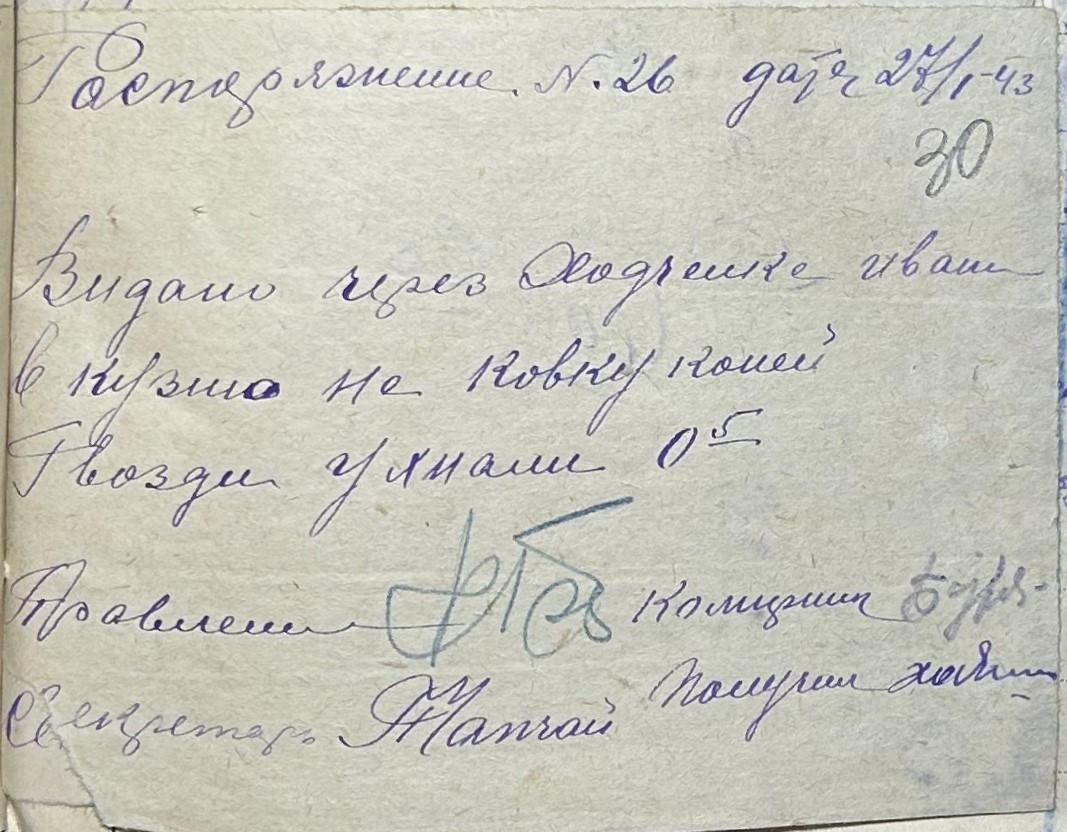 Распоряжение N. 26 дата 27/I-43
30
Видано через Ходченке иван
в кузню на ковку коней
Гвозди ухнали 0 5
Правлени
Секретарь Получил